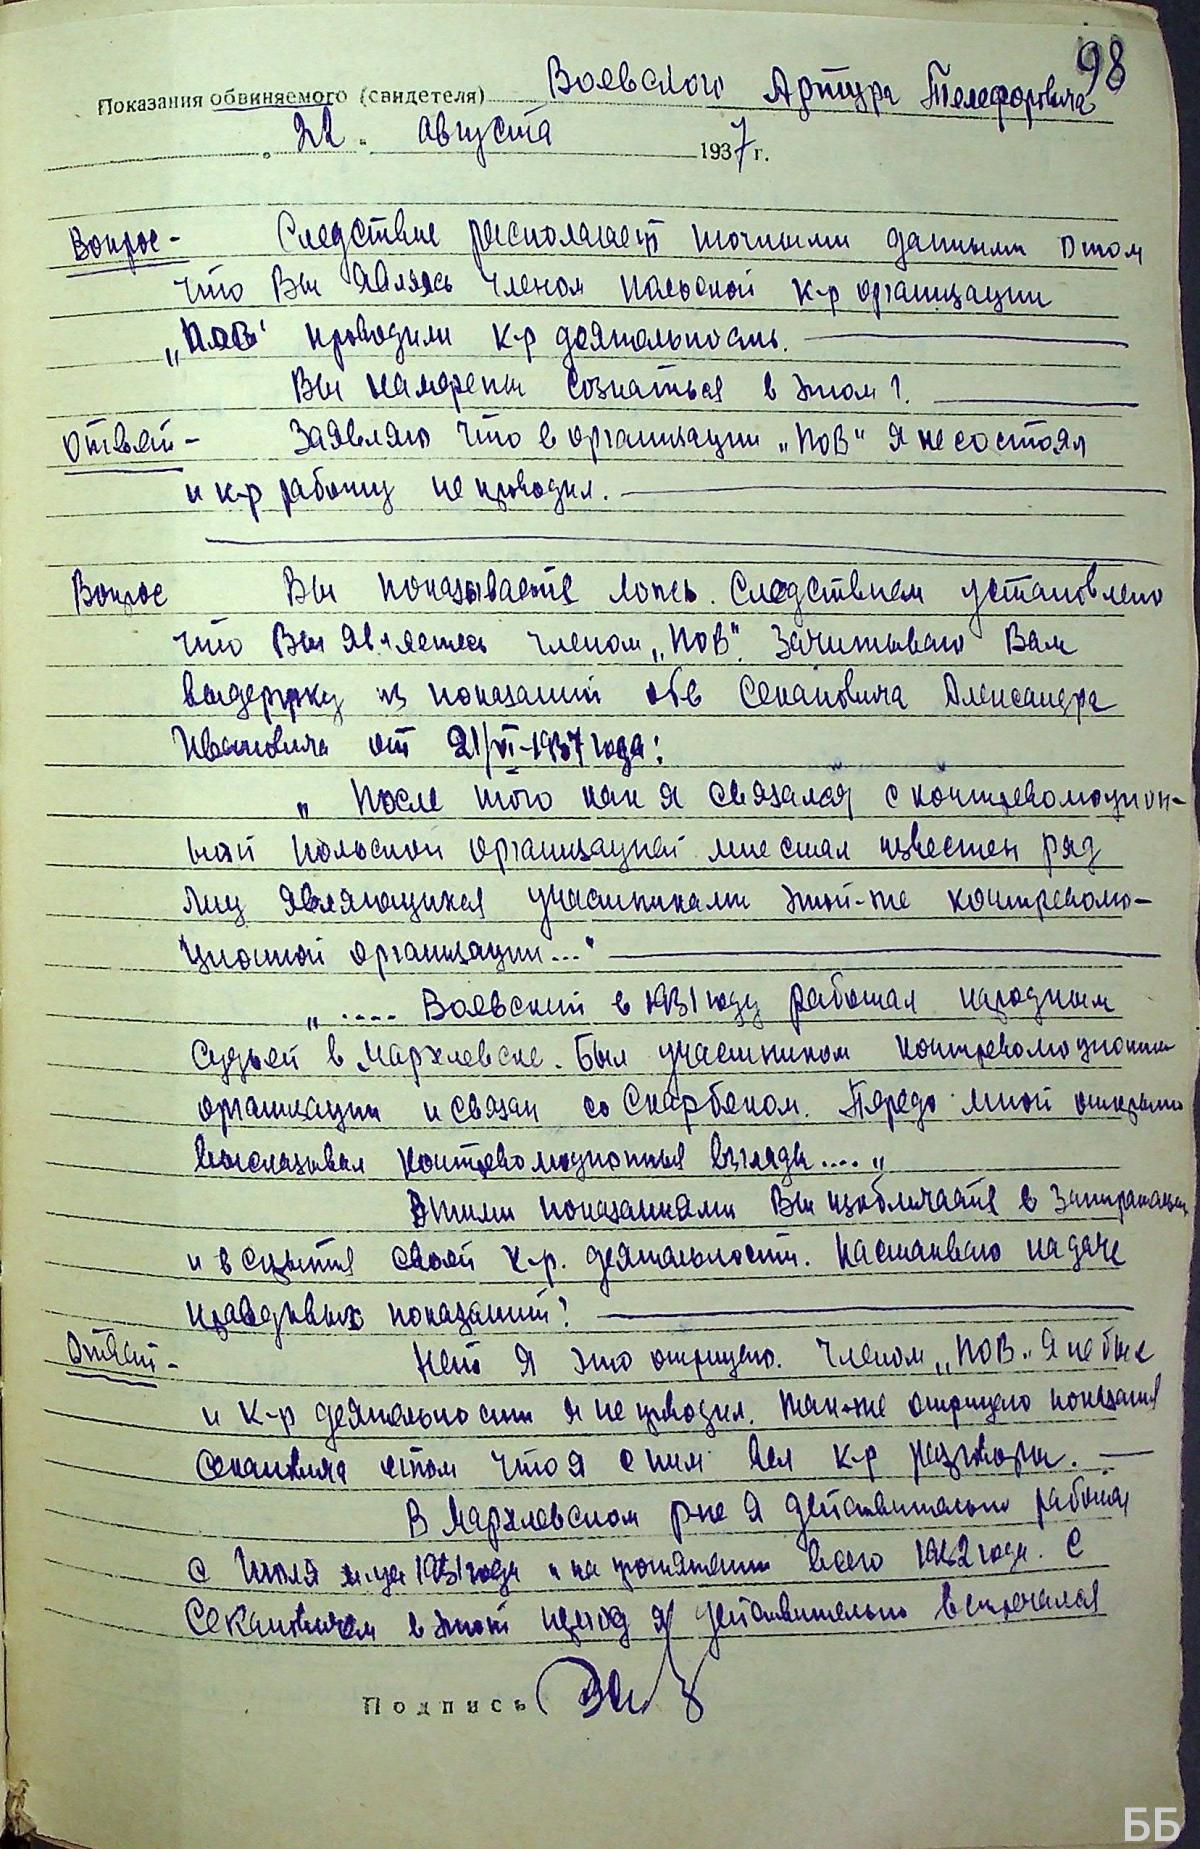 98
Показания обвиняемого (свидетеля) Воевского Артура Телефоровича
„ 22 „ августа 1937 г.
Вопрос - Следствие располагает точными данными о том
что Вы являясь членом польской к-р организации
„ПОВ" проводили к-р деятельность.
Вы намерены сознаться в этом?
Ответ - Заявляю что в организации „ПОВ" я не состоял
и к-р работу не проводил.
Вопрос Вы показываете ложь. Следствием установлено
что Вы являетесь членом „ПОВ". Зачитываю Вам
выдержку из показаний обв Секановича Александра
Ивановича от 21/VI-1937 года:
„После того как я связался с контрреволюцион-
ной польской организацией мне стал известен ряд
лиц являющихся участниками этой-же контрреволю-
ционной организации..."
„.... Воевский в 1931 году работал народным
Судьей в Мархлевске. Был участником контрреволюционной
организации и связан со Скарбеком. Передо мной открыто
высказывал контрреволюционные взгляды...."
Этими показаниями Вы изобличаетесь в
и в скрытии своей к-р. деятельности. Настаиваю на даче
правдивых показаний!
Ответ - Нет я это отрицаю. Членом „ПОВ" я не был
и к-р деятельности я не проводил. Также отрицаю показания
Секановича о том что я с ним вел к-р разговоры.
В Мархлевском р-не я действительно работал
с Июля м-ца 1931 года и на протяжении всего 1932 года. С
Секановичем в этот период я действительно встречался
Подпись
ББ